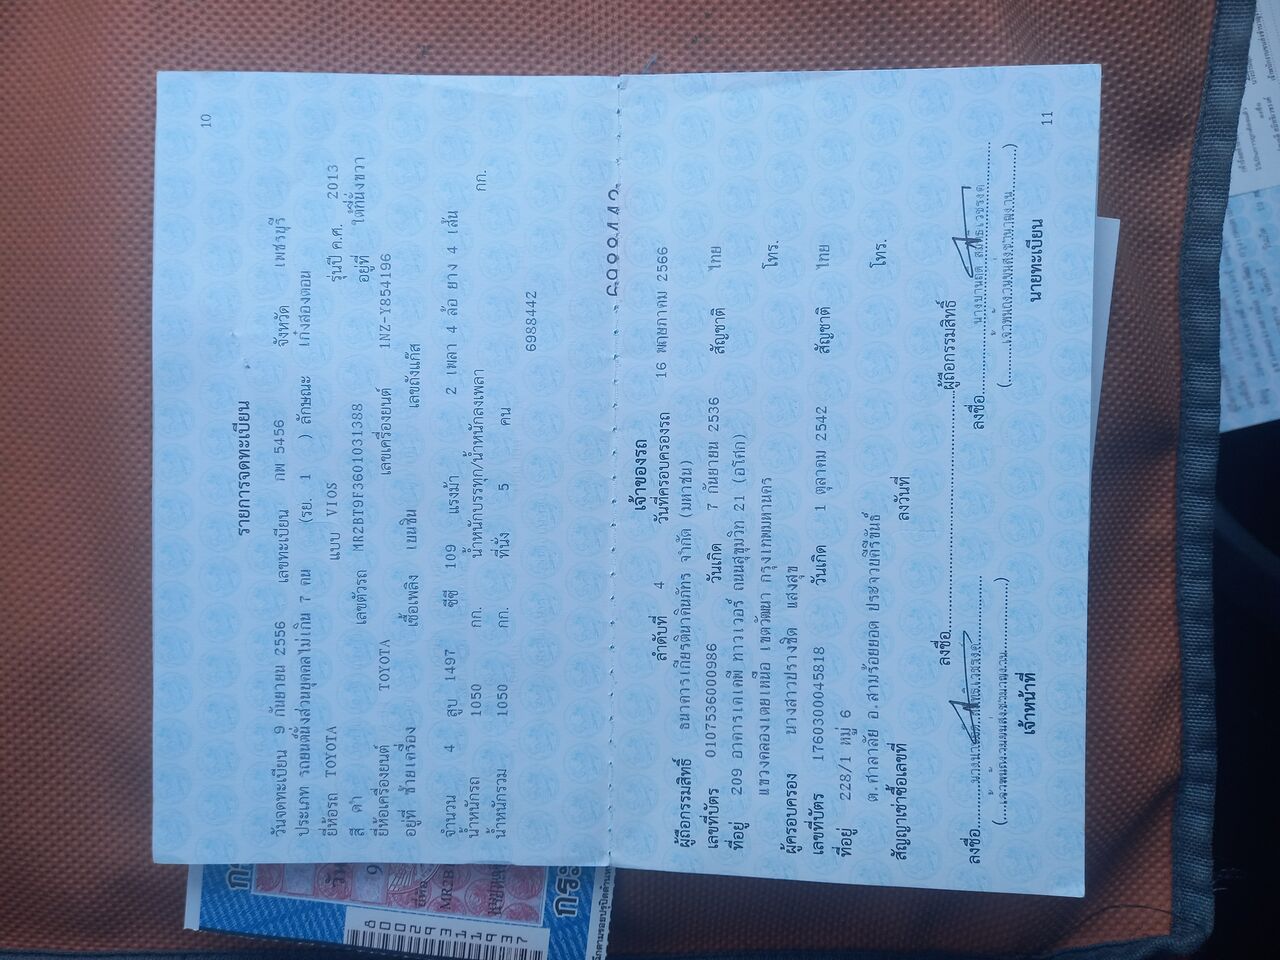 10
รายการจดทะเบียน
วันจดทะเบียน 9 กันยายน 2556 เลขทะเบียน กพ 5456 จังหวัด เพชรบุรี
ประเภท รถยนต์นั่งส่วนบุคคลไม่เกิน 7 คน (รย. 1 ) ลักษณะ เก๋งสองตอน
ยี่ห้อรถ TOYOTA แบบ VIOS รุ่นปี ค.ศ. 2013
สี ดำ เลขตัวรถ MR2BT9F3601031388 อยู่ที่ ใต้ที่นั่งขวา
ยี่ห้อเครื่องยนต์ TOYOTA เลขเครื่องยนต์ 1NZ-Y854196
อยู่ที่ ซ้ายเครื่อง เชื้อเพลิง เบนซิน เลขถังแก๊ส
จำนวน 4 สูบ 1497 ซีซี 109 แรงม้า 2 เพลา 4 ล้อ ยาง 4 เส้น
น้ำหนักรถ 1050 กก. น้ำหนักบรรทุก/น้ำหนักลงเพลา กก.
น้ำหนักรวม 1050 กก. ที่นั่ง 5 คน
6988442
เจ้าของรถ
ลำดับที่ 4 วันที่ครอบครองรถ 16 พฤษภาคม 2566
ผู้ถือกรรมสิทธิ์ ธนาคารเกียรตินาคินภัทร จำกัด (มหาชน)
เลขที่บัตร 0107536000986 วันเกิด 7 กันยายน 2536 สัญชาติ ไทย
ที่อยู่ 209 อาคารเคเคพี ทาวเวอร์ ถนนสุขุมวิท 21 (อโศก)
แขวงคลองเตยเหนือ เขตวัฒนา กรุงเทพมหานคร โทร.
ผู้ครอบครอง นางสาวปรางชิด แสงสุข
เลขที่บัตร 1760300045818 วันเกิด 1 ตุลาคม 2542 สัญชาติ ไทย
ที่อยู่ 228/1 หมู่ 6
ต.ศาลาลัย อ.สามร้อยยอด ประจวบคีรีขันธ์ โทร.
สัญญาเช่าซื้อเลขที่ ลงวันที่
ลงชื่อ ผู้ถือกรรมสิทธิ์
ลงชื่อ ลงชื่อ
(เจ้าพนักงานขนส่งชำนาญงาน) (เจ้าพนักงานขนส่งชำนาญงาน)
เจ้าหน้าที่ นายทะเบียน
11
MR2B